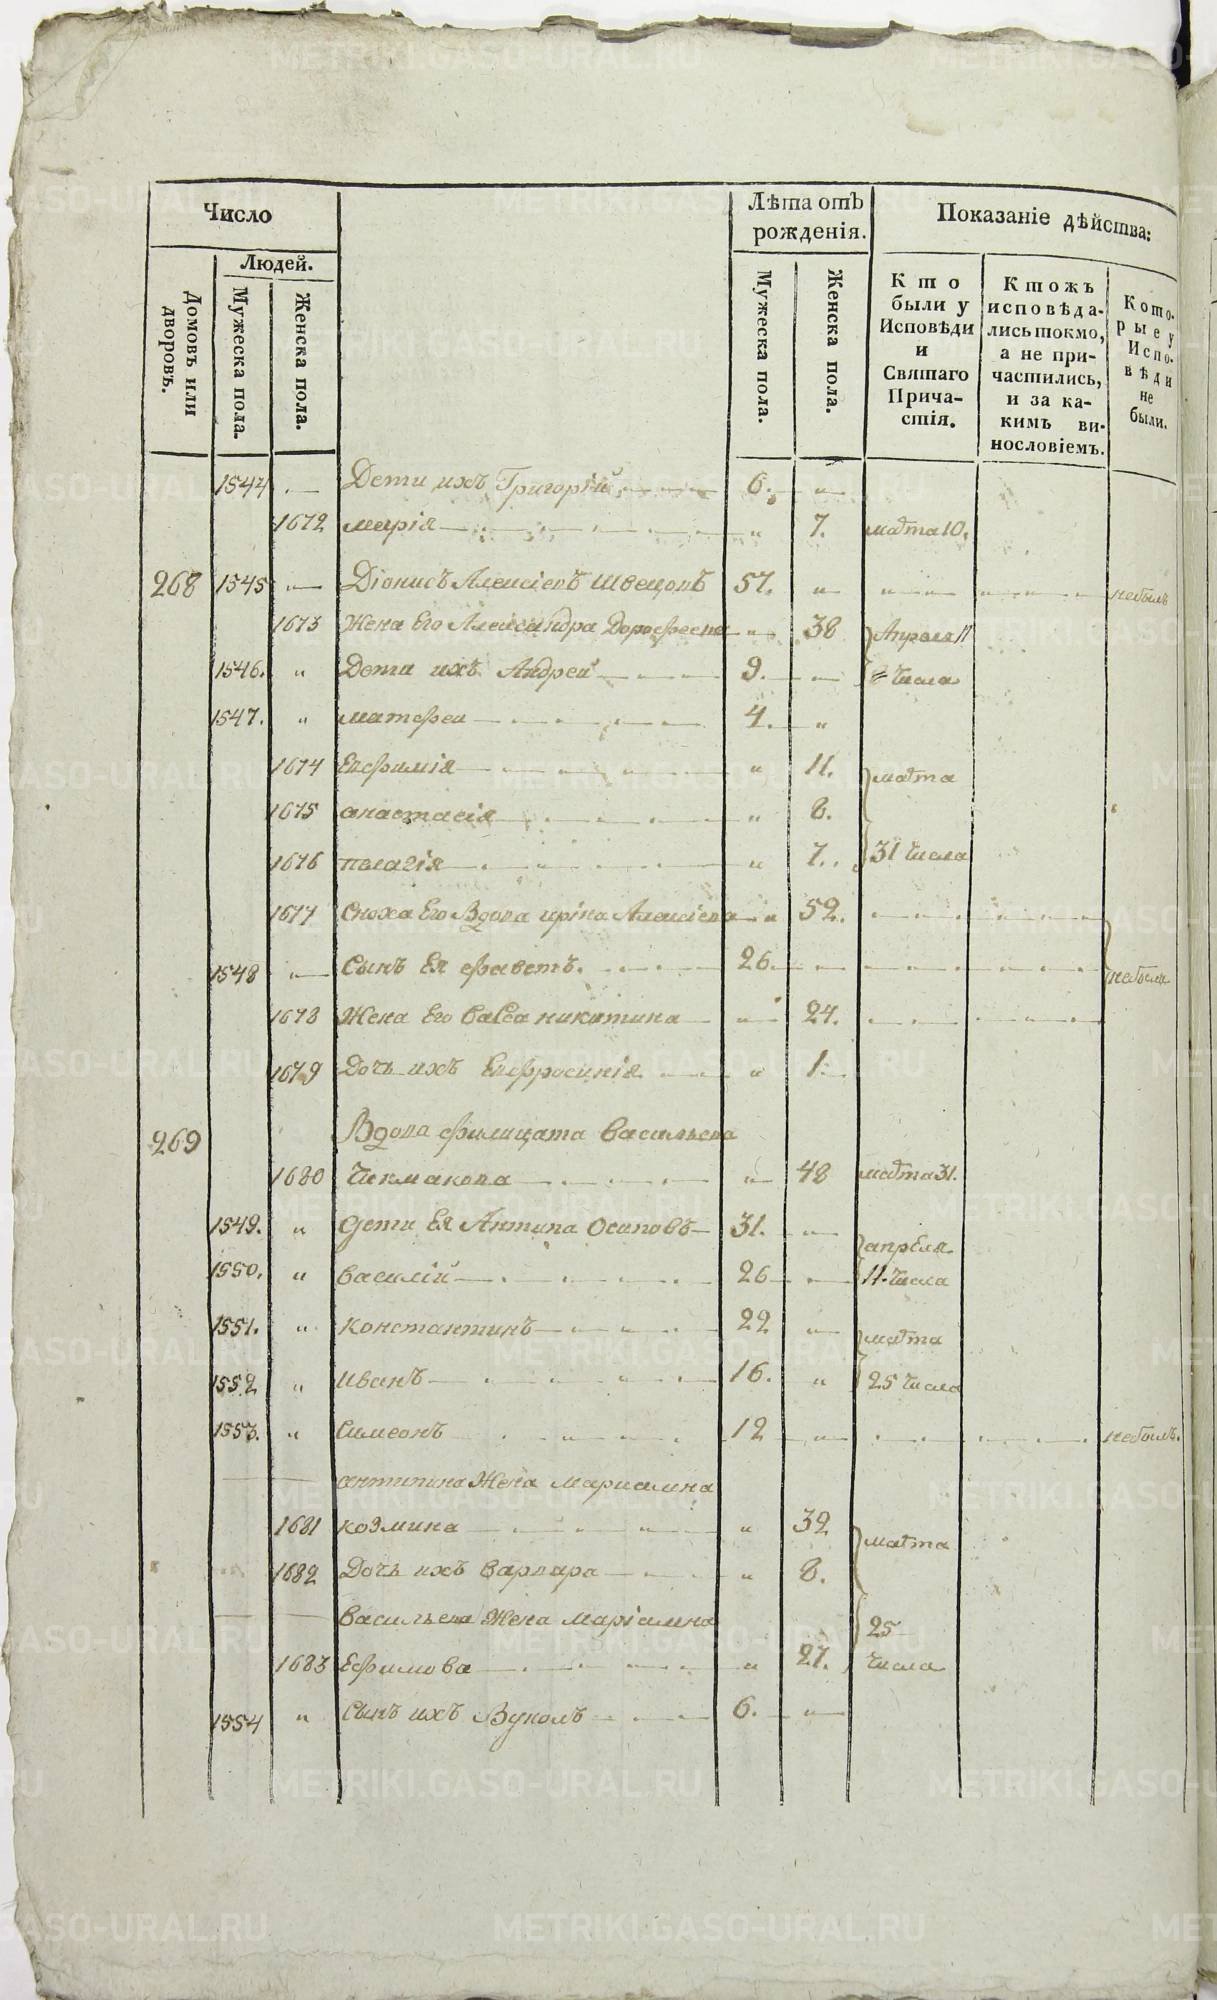 Число
Лѣта отъ рожденія.
Показаніе дѣйства:
Людей.
Домовъ или дворовъ.
Мужеска пола.
Женска пола.
Мужеска пола.
Женска пола.
Кто были у Исповѣди и Святаго Причастія.
Ктожъ исповѣдались токмо, а не причастились, и за какимъ винословіемъ.
Которые у Исповѣди не были.
1544 Дети ихъ Григорій 6. „
1672 марія „ 7. марта 10.
268 1545 Діонисъ Алексіевъ Швецовъ 57. „ небылъ
1673 Жена Его Александра Дорофеева „ 38 Апреля 11
1546. „ Дети ихъ Андрей 9. числа
1547. „ матфеи 4. „
1674 Евфимія „ 11. марта
1675 анастасія „ 8.
1676 пелагія „ 7. 31 числа
1677 Сноха Его Вдова ирина Алексіева „ 52.
1548 Сынъ Ея 26. небыли
1678 Жена Его васса никитина „ 24.
1679 Дочь ихъ Евфросинія „ 1.
269 Вдова филицата васильева
1680 Чекмакова „ 48 марта 31.
1549. „ дети Ея Антипа Осиповъ 31. апреля
1550. „ василій 26 11. числа
1551. „ константинъ 22 марта
1552 „ иванъ 16. „ 25 числа
1553. „ Симеонъ 12 небылъ.
антипина Жена мариамна
1681 козмина „ 32 марта
1682 Дочь ихъ варвара „ 8.
васильева Жена маріамна 25
1683 Ефимова „ 27. числа
1554 „ Сынъ ихъ Вуколъ 6. „
METRIKI.GASO-URAL.RU